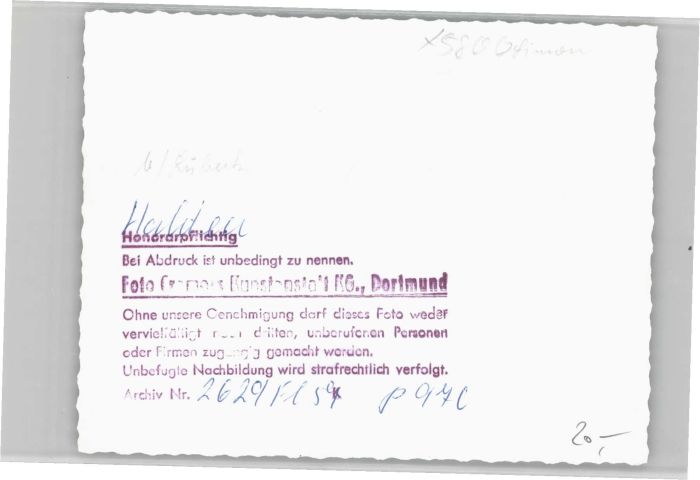 Halden
Honorarpflichtig
Bei Abdruck ist unbedingt zu nennen.
Foto Cramers Kunstanstalt KG., Dortmund
Ohne unsere Genehmigung darf dieses Foto weder
vervielfältigt noch dritten, unberufenen Personen
oder Firmen zugängig gemacht werden.
Unbefugte Nachbildung wird strafrechtlich verfolgt.
Archiv Nr. 2629
20,-